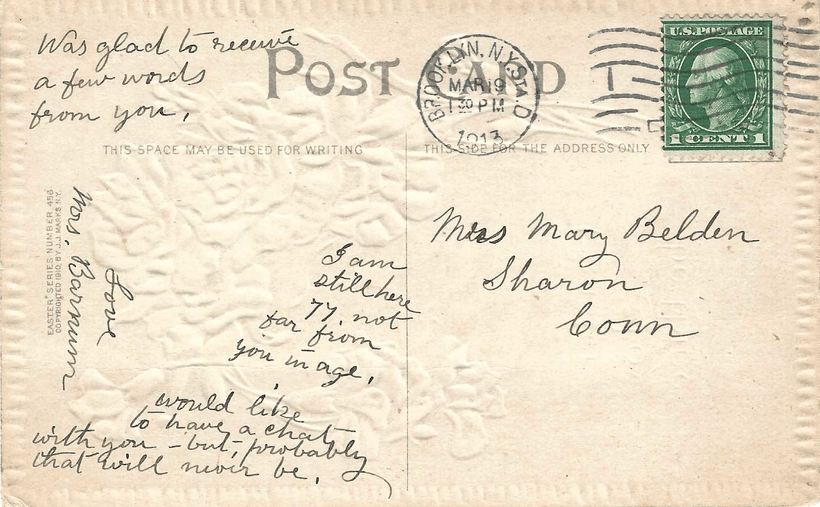 Was glad to receive
a few words
from you,
POST CARD
THIS SPACE MAY BE USED FOR WRITING
THIS SIDE FOR THE ADDRESS ONLY
BROOKLYN, N.Y. STA. D
MAR 19
1 30 PM
1913
U.S. POSTAGE
1 CENT 1
EASTER SERIES NUMBER 456
COPYRIGHTED 1910, BY J.J. MARKS N.Y.
I am
still here
77. not
far from
you in age.
would like
to have a chat
with you - but, probably
that will never be.
Love
Mrs. Barnum
Mrs Mary Belden
Sharon
Conn